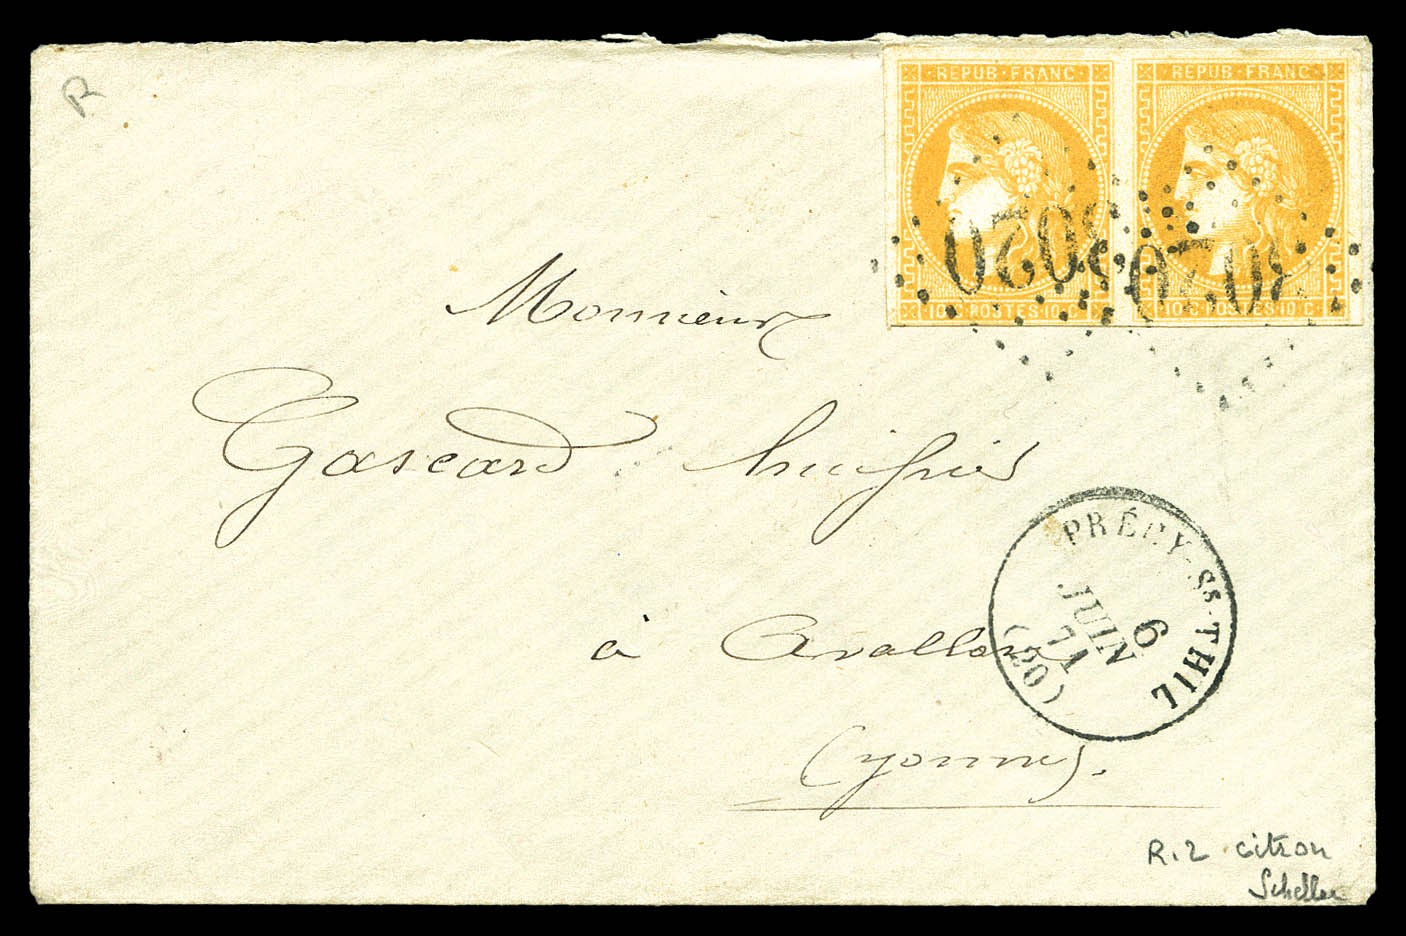 R
REPUB·FRANC·
10·C·POSTES·10·C·
REPUB·FRANC·
10·C·POSTES·10·C·
3020
3020
Monsieur
Gascard huissier
à Avallon
(yonne).
PRÉCY-SS-THIL
6
JUIN
71
(20)
R.2 citron
Scheller